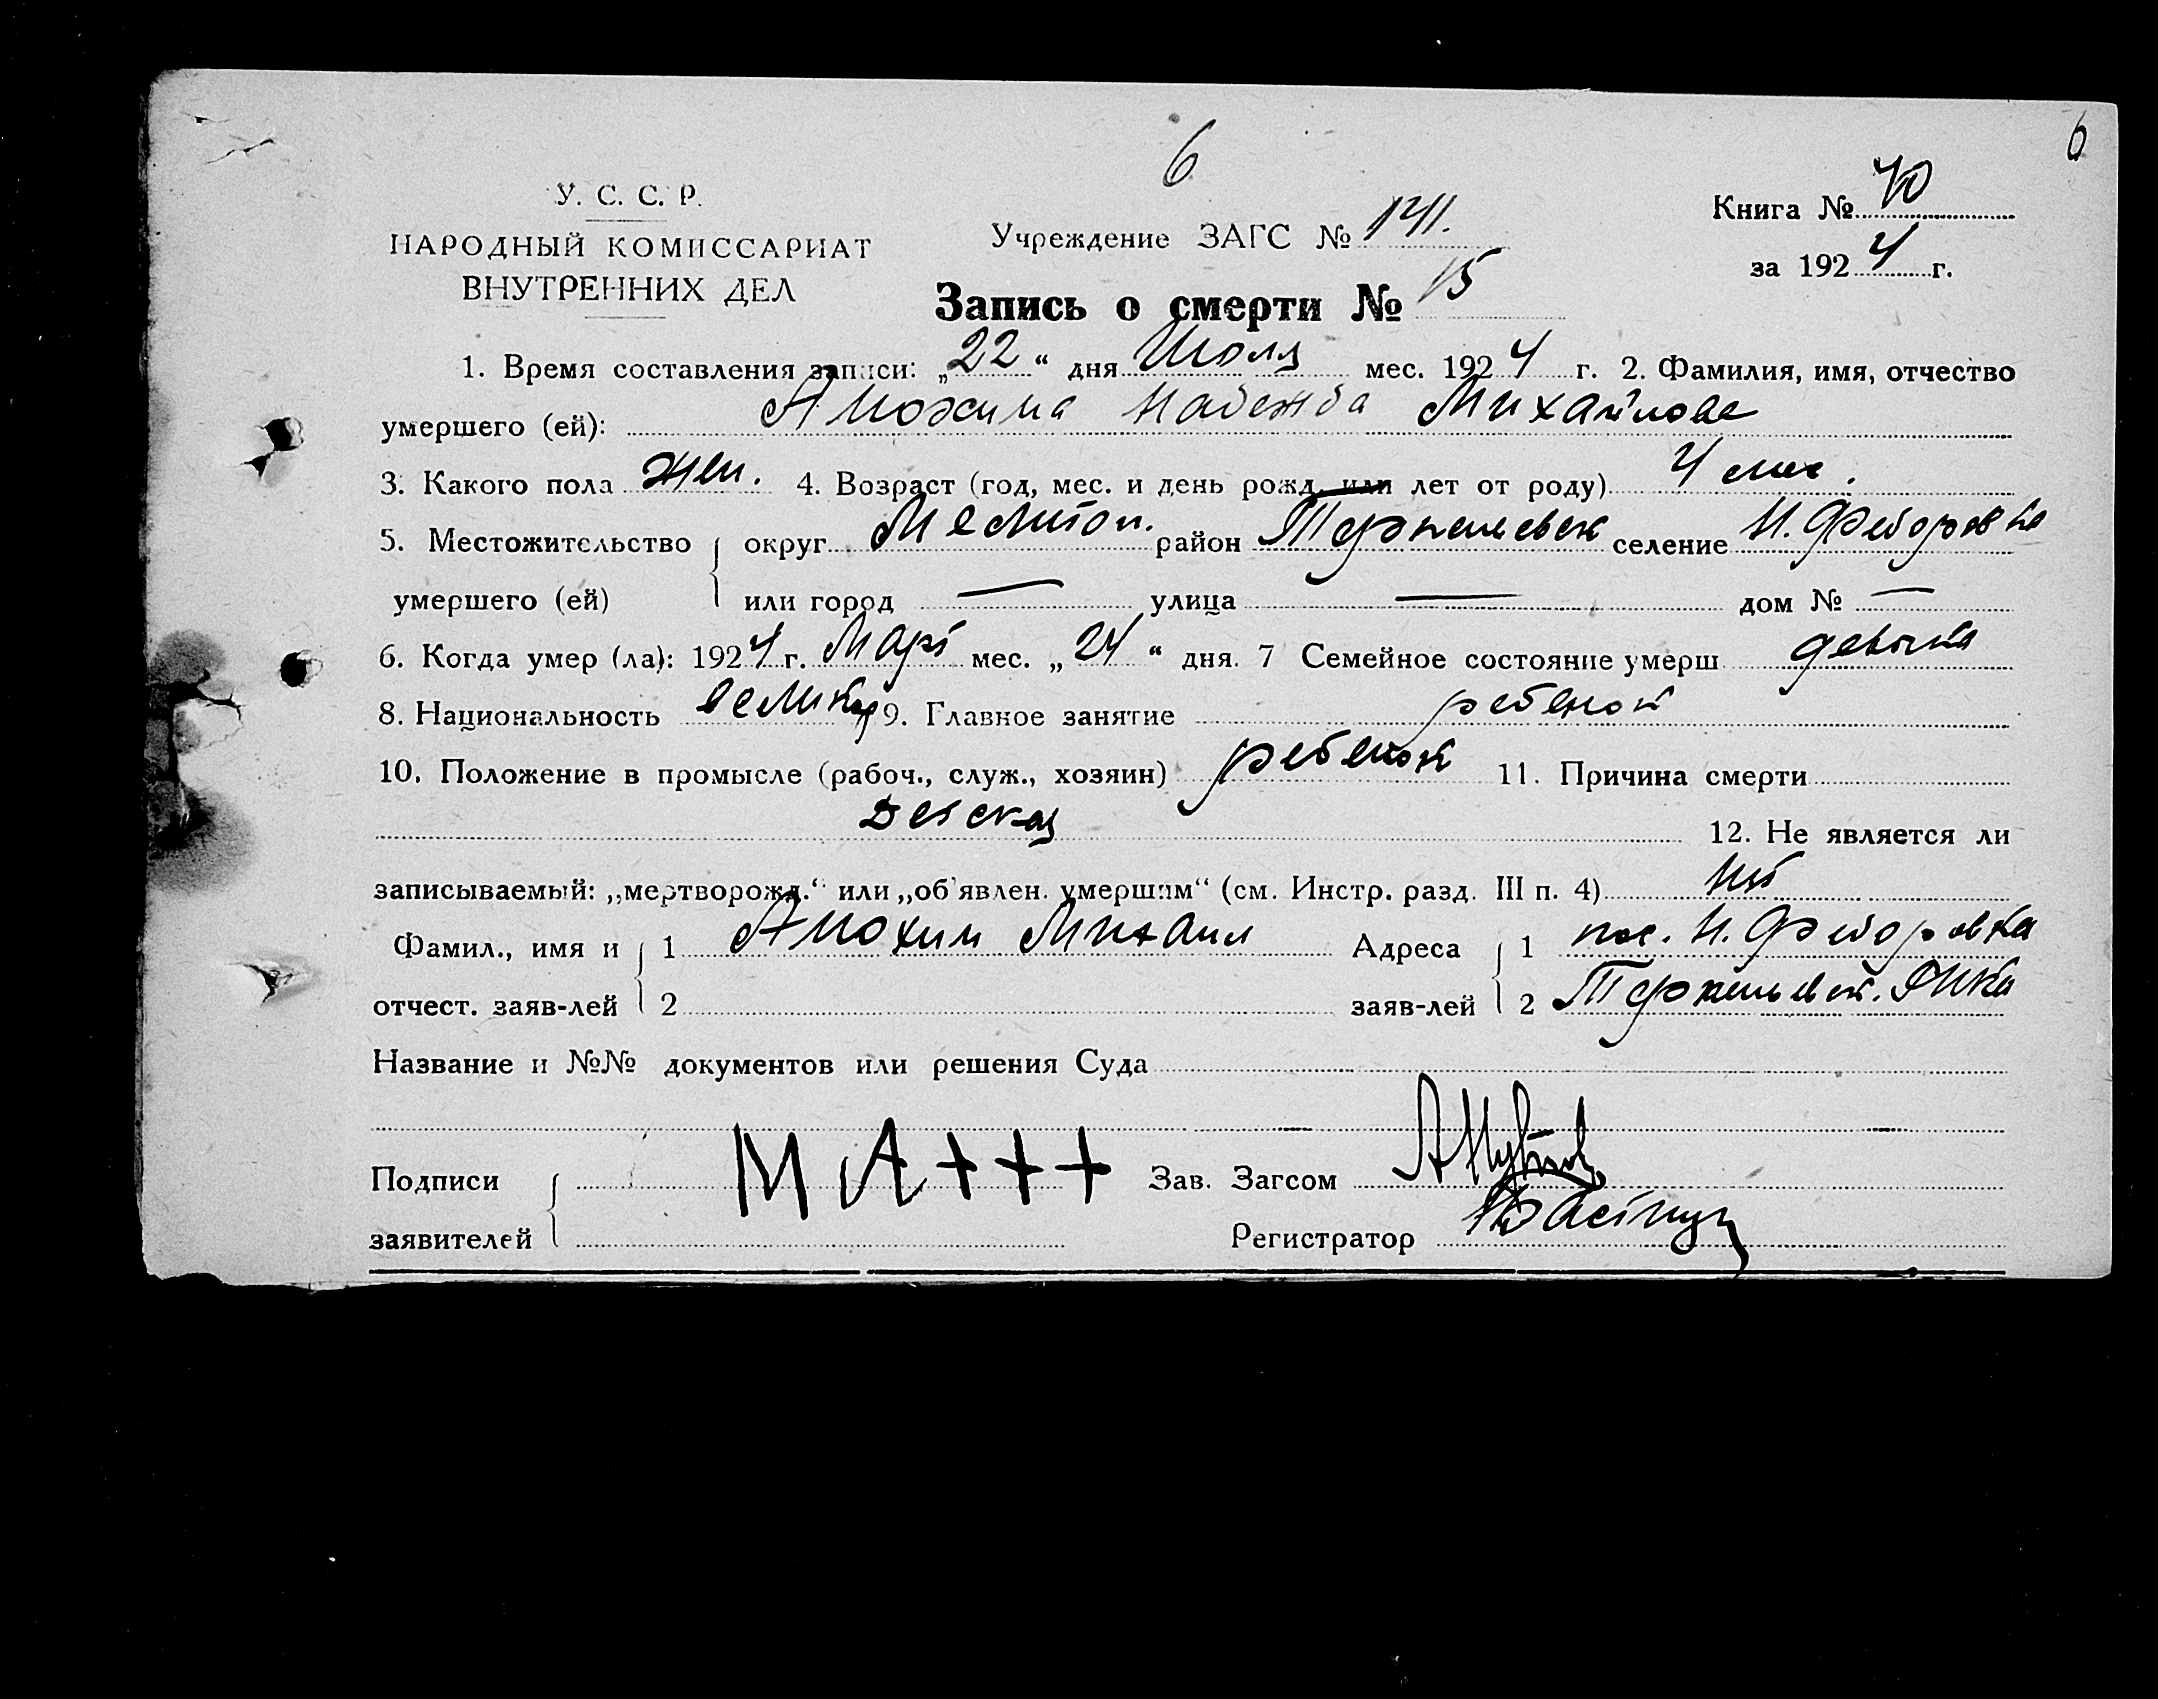 6
6
У. С. С. Р.
НАРОДНЫЙ КОМИССАРИАТ
ВНУТРЕННИХ ДЕЛ
Учреждение ЗАГС № 1411.
Книга № 40
за 1924 г.
Запись о смерти № 15
1. Время составления записи: „22“ дня Июля мес. 1924 г. 2. Фамилия, имя, отчество
умершего (ей): Анохина Надежда Михайлова
3. Какого пола жен. 4. Возраст (год, мес. и день рожд. или лет от роду) 4 мес.
5. Местожительство округ Мелитоп. район селение Н. Федоровка
умершего (ей) или город — улица — дом № —
6. Когда умер (ла): 1924 г. Март мес. „24“ дня. 7 Семейное состояние умерш девочка
8. Национальность 9. Главное занятие ребенок
10. Положение в промысле (рабоч., служ., хозяин) ребенок 11. Причина смерти
Детская 12. Не является ли
записываемый: „мертворожд.“ или „об'явлен. умершим“ (см. Инстр. разд. III п. 4) нет
Фамил., имя и 1 Анохин Михаил Адреса 1 пос. Н. Федоровка
отчест. заяв-лей 2 заяв-лей 2
Название и №№ документов или решения Суда
Подписи М А + + + Зав. Загсом
заявителей Регистратор